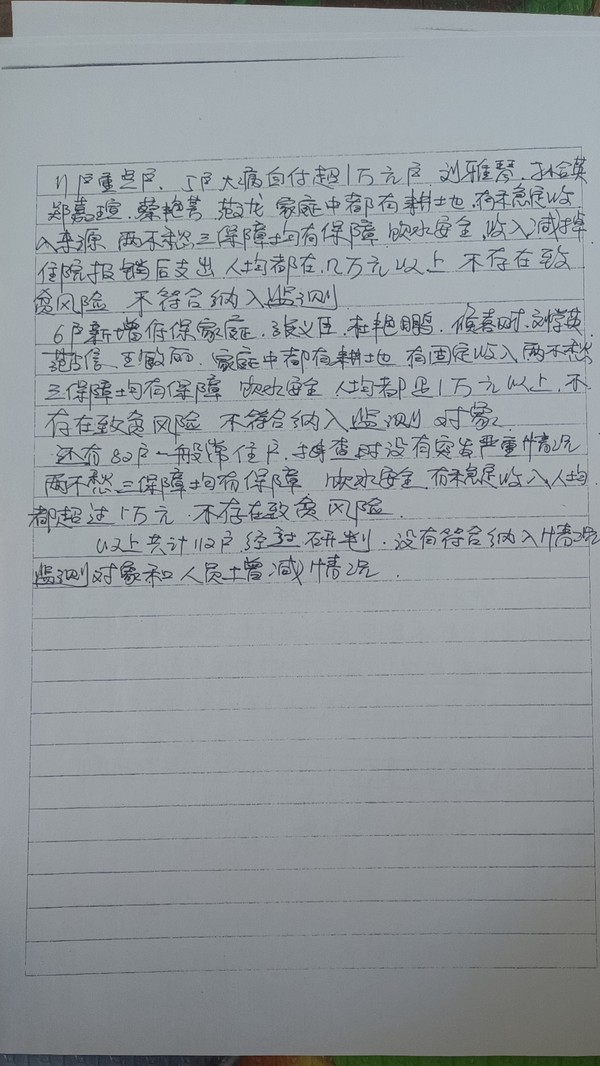 11户重点户，5户大病自付超1万元户，刘雅琴，孙合英
郑嘉瑄，蔡艳菁，龙 家庭中都有耕地，有稳定收
入来源 两不愁三保障均有保障 饮水安全，收入减掉
住院报销后支出 人均都在几万元以上 不存在致
贫风险 不符合纳入监测
6户新增低保家庭，张义臣，杜艳鹏，候春时，刘学英
信 王敏丽，家庭中都有耕地 有固定收入 两不愁
三保障均有保障 饮水安全 人均都是1万元以上，不
存在致贫风险 不符合纳入监测对象
还有 户一般常住户，排查时没有突发严重情况
两不愁三保障均有保障 饮水安全 有稳定收入 人均
都超过1万元 不存在致贫风险
以上共计 户经过研判，没有符合纳入情况
监测对象和人员增减情况．